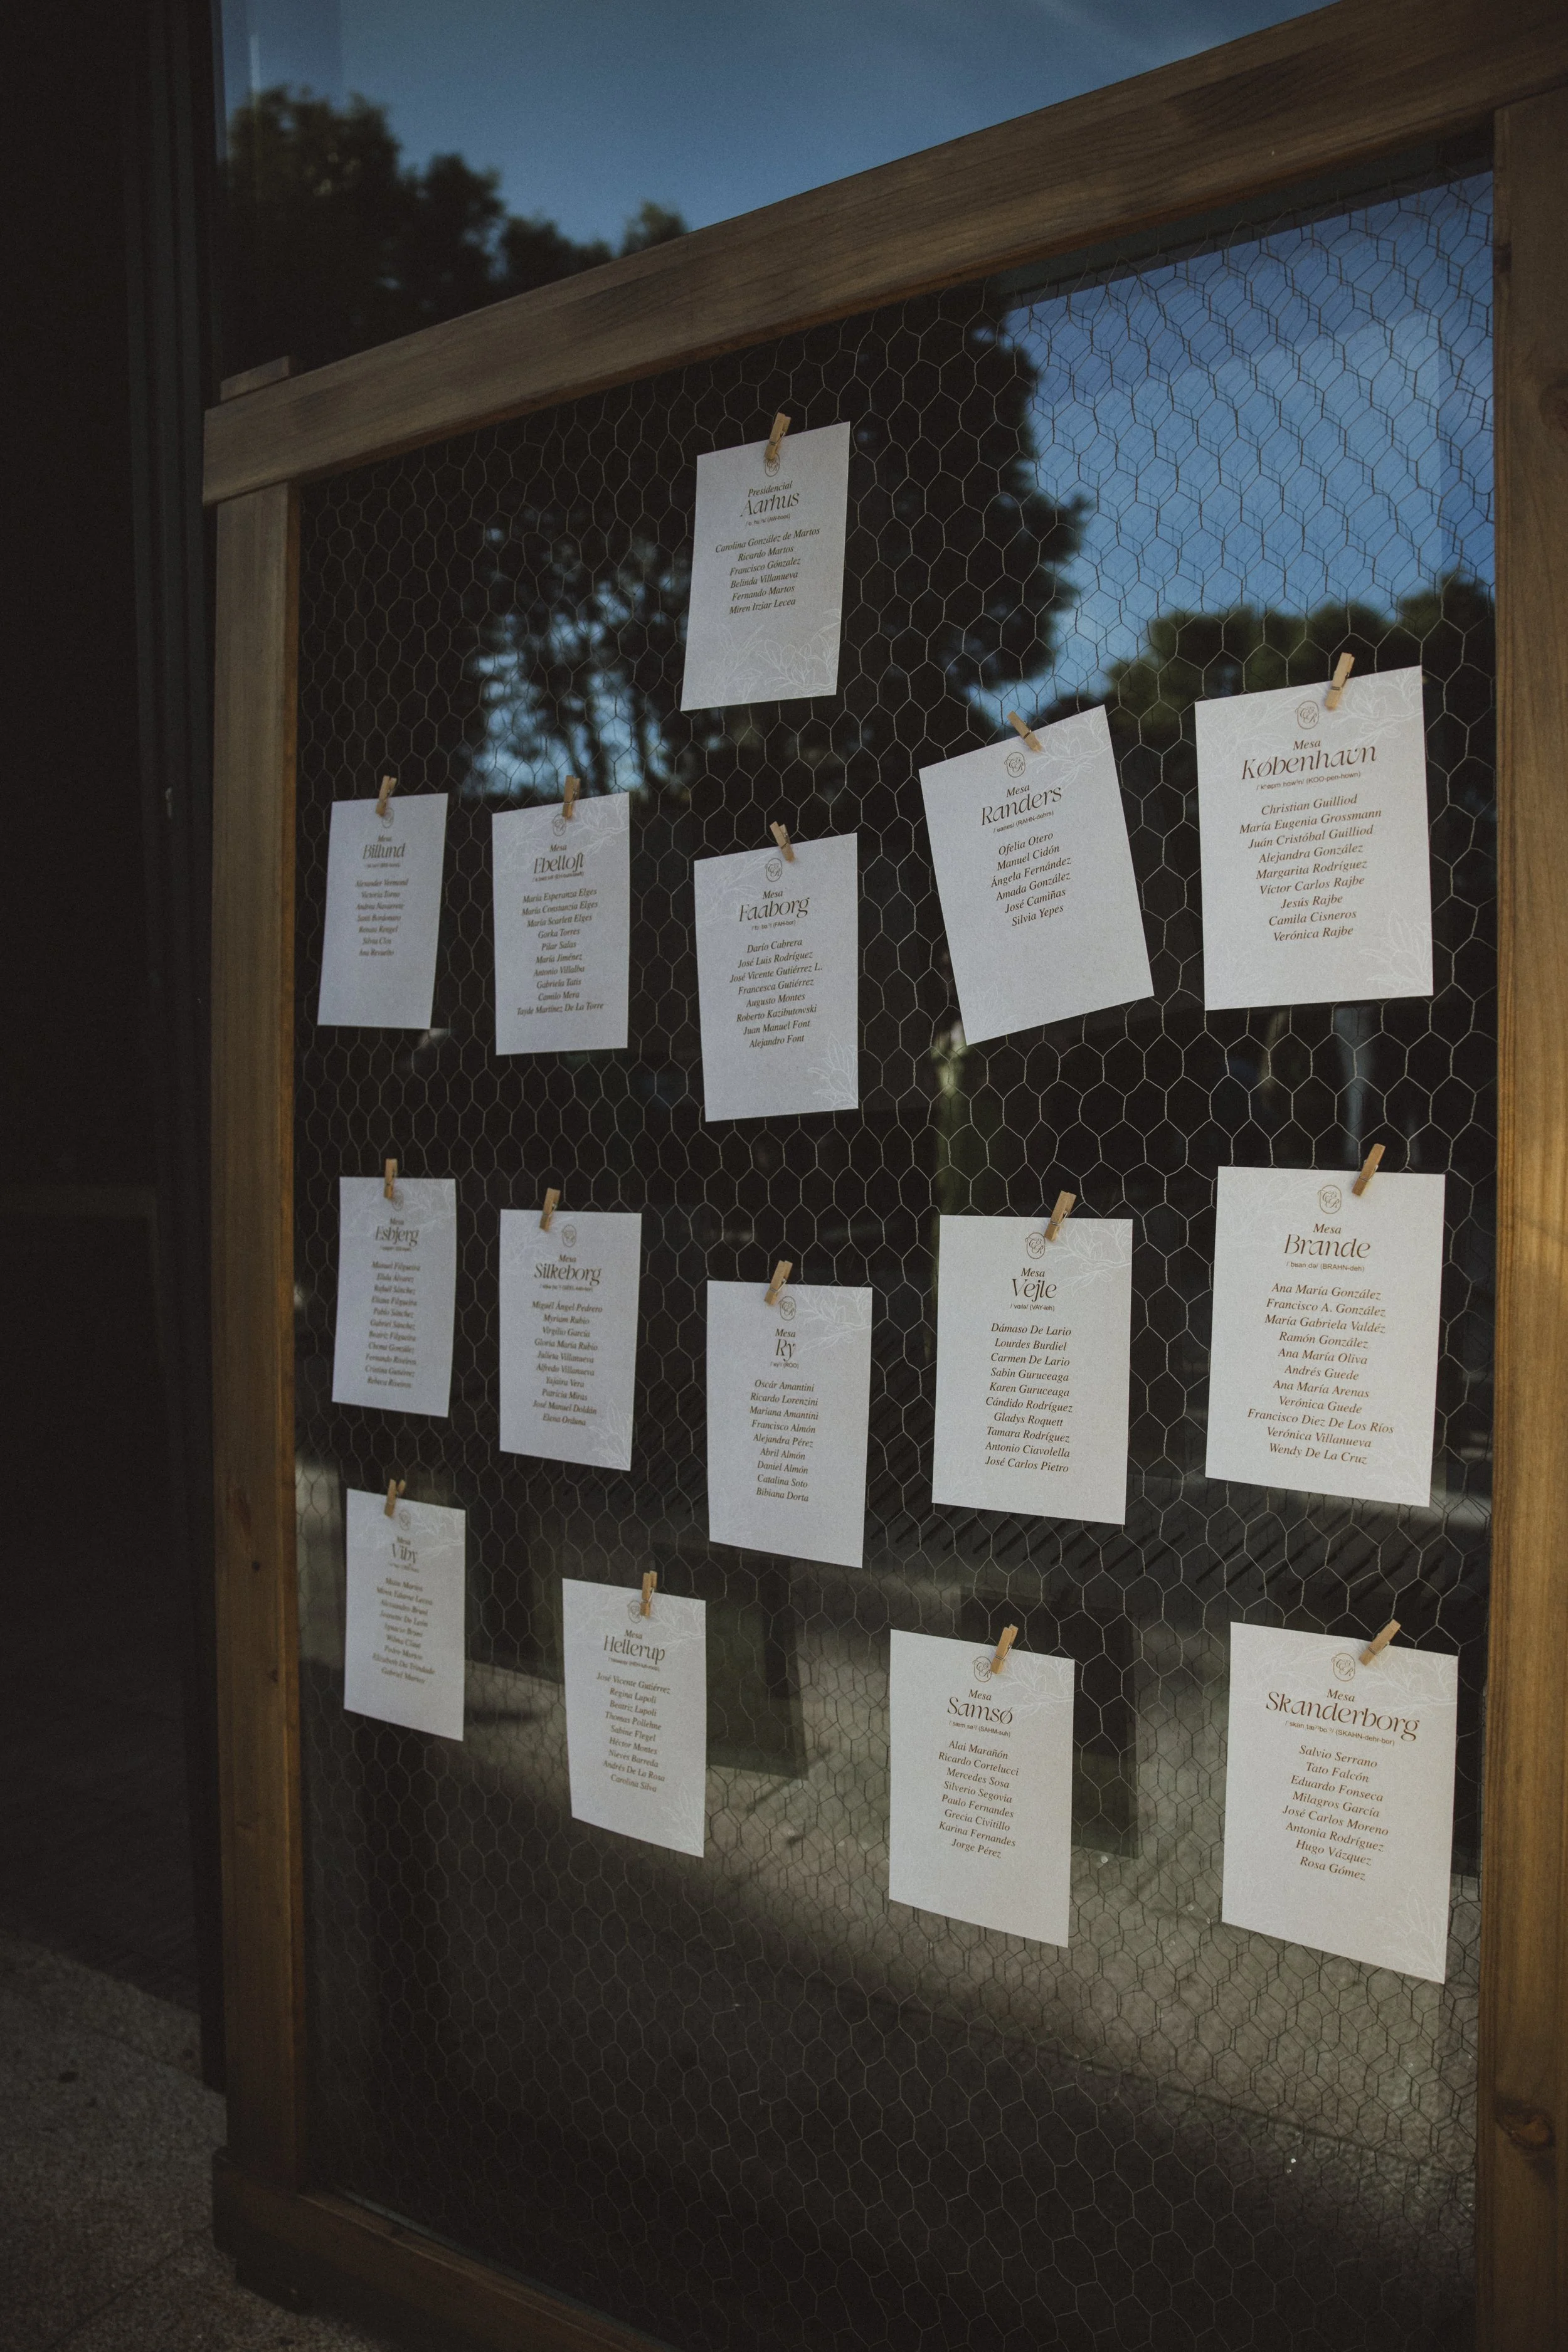 Presidencial
Aarhus
Carolina González de Martos
Ricardo Martos
Francisco Gónzalez
Belinda Villanueva
Fernando Martos
Miren Itziar Lecea
Mesa
Billund
Alexander Vermund
Victoria Torso
Andrea Navarrete
Santi Bordonaro
Ana Revuelto
Mesa
Ebeltoft
María Esperanza Elges
María Constanzia Elges
María Scarlett Elges
Gorka Torres
Pilar Salas
María Jiménez
Antonio Villalba
Gabriela Tatis
Camilo Mera
Tayde Martínez De La Torre
Mesa
Faaborg
Darío Cabrera
José Luis Rodríguez
José Vicente Gutiérrez L.
Francesca Gutiérrez
Augusto Montes
Roberto Kazibutowski
Juan Manuel Font
Alejandro Font
Mesa
Randers
(RAHN-dehrs)
Ofelia Otero
Manuel Cidón
Ángela Fernández
Amada González
José Camiñas
Silvia Yepes
Mesa
København
(KOO-pen-hown)
Christian Guilliod
María Eugenia Grossmann
Juán Cristóbal Guilliod
Alejandra González
Margarita Rodríguez
Víctor Carlos Rajbe
Jesús Rajbe
Camila Cisneros
Verónica Rajbe
Mesa
Esbjerg
Manuel Filgueira
Elida Álvarez
Rafael Sánchez
Eliana Filgueira
Pablo Sánchez
Gabriel Sánchez
Beatriz Filgueira
Chema González
Fernando Riveiros
Cristina Gutiérrez
Rebeca Riveiros
Mesa
Silkeborg
Miguél Ángel Pedrero
Myriam Rubio
Virgilio García
Gloria María Rubio
Julieta Villanueva
Alfredo Villanueva
Yajaira Vera
Patricia Miras
José Manuel Doldán
Elena Orduna
Mesa
Ry
Oscár Amantini
Ricardo Lorenzini
Mariana Amantini
Francisco Almón
Alejandra Pérez
Abril Almón
Daniel Almón
Catalina Soto
Bibiana Dorta
Mesa
Vejle
(VAY-leh)
Dámaso De Lario
Lourdes Burdiel
Carmen De Lario
Sabin Guruceaga
Karen Guruceaga
Cándido Rodríguez
Gladys Roquett
Tamara Rodríguez
Antonio Ciavolella
José Carlos Pietro
Mesa
Brande
(BRAHN-deh)
Ana María González
Francisco A. González
María Gabriela Valdéz
Ramón González
Ana María Oliva
Andrés Guede
Ana María Arenas
Verónica Guede
Francisco Diez De Los Ríos
Verónica Villanueva
Wendy De La Cruz
Mesa
Viby
Miren Edurne Lecea
Alessandro Bruni
Jeanette De León
Ignacio Bruni
Pedro Martos
Elizabeth Da Trindade
Mesa
Hellerup
José Vicente Gutiérrez
Regina Lupoli
Beatriz Lupoli
Thomas Pollehne
Sabine Flegel
Héctor Montes
Nieves Barreda
Andrés De La Rosa
Carolina Silva
Mesa
Samsø
(SAHM-suh)
Alai Marañón
Ricardo Cortelucci
Mercedes Sosa
Silverio Segovia
Paulo Fernandes
Grecia Civitillo
Karina Fernandes
Jorge Pérez
Mesa
Skanderborg
(SKAHN-dehr-bor)
Salvio Serrano
Tato Falcón
Eduardo Fonseca
Milagros García
José Carlos Moreno
Antonia Rodríguez
Hugo Vázquez
Rosa Gómez